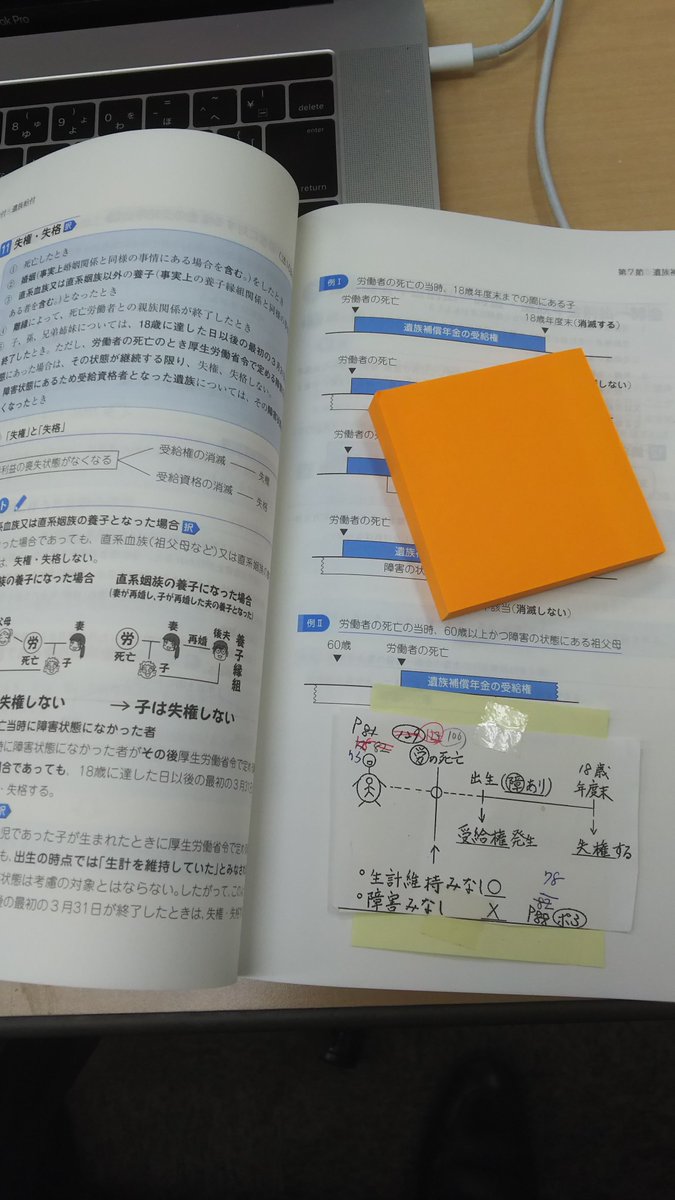 ok Pro
8 ( ゆ ゅ
9 ) よ ょ
0 わ を
- = ほ
^ ~ へ
¥ | ー
delete
enter
return
付・遺族給付
11 失権・失格 訳
① 死亡したとき
② 婚姻(事実上婚姻関係と同様の事情にある場合を含む。)をしたとき
③ 直系血族又は直系姻族以外の養子(事実上の養子縁組関係と同様の
ある者を含む。)となったとき
離縁によって、死亡労働者との親族関係が終了したとき
子、孫、兄弟姉妹については、18歳に達した日以後の最初の3月
終了したとき。ただし、労働者の死亡のとき厚生労働省令で定める
態にあった場合は、その状態が継続する限り、失権、失格しない。
障害状態にあるため受給資格者となった遺族については、その
くなったとき
「失権」と「失格」
利益の喪失状態がなくなる
受給権の消滅 ― 失権
受給資格の消滅 ― 失格
ト
系血族又は直系姻族の養子となった場合 訳
った場合であっても、直系血族(祖父母など)又は直系姻族の
は、失権・失格しない。
族の養子になった場合
直系姻族の養子になった場合
(妻が再婚し、子が再婚した夫の養子となった)
父母
労 死亡 妻 子
労 死亡 妻 再婚 後夫 子 養子縁組
失権しない → 子は失権しない
亡当時に障害状態になかった者
時に障害状態になかった者がその後厚生労働省令で定め
場合であっても、18歳に達した日以後の最初の3月31
・失格する。
訳
児であった子が生まれたときに厚生労働省令で定め
も、出生の時点では「生計を維持していた」とみなされ
状態は考慮の対象とはならない。したがって、この
後の最初の3月31日が終了したときは、失権・失格
第7節 遺族補
例Ⅰ 労働者の死亡の当時、18歳年度末までの間にある子
労働者の死亡
18歳年度末(消滅する)
遺族補償年金の受給権
労働者の死亡
しない)
労働者の死
労働者の死亡
遺族補
障害の状
該当(消滅しない)
例Ⅱ 労働者の死亡の当時、60歳以上かつ障害の状態にある祖父母
60歳 労働者の死亡
遺族補償年金の受給権
P81
106
労の死亡
出生(障あり)
18歳
年度末
受給権発生
失権する
°生計維持みなし○
°障害みなし ×
78
82